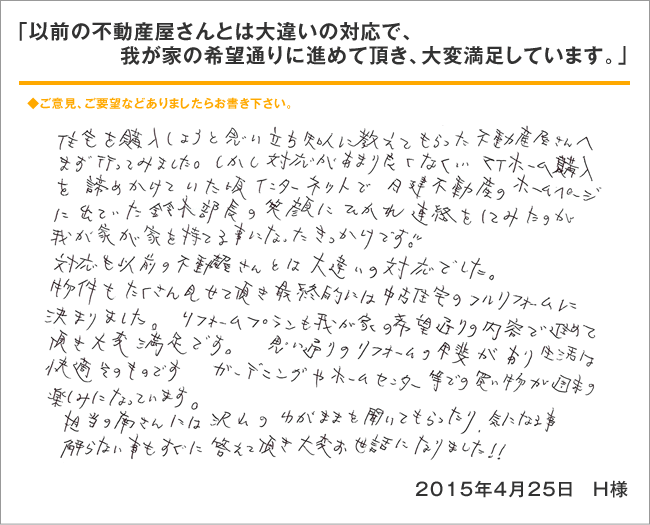 「以前の不動産屋さんとは大違いの対応で、
我が家の希望通りに進めて頂き、大変満足しています。」
◆ご意見、ご要望などありましたらお書き下さい。
住宅を購入しようと思い立ち知人に教えてもらった不動産屋さんへ
まず行ってみました。しかし対応があまり良くなくい マイホーム購入
を諦めかけていた頃インターネットで 日建不動産のホームページ
に出ていた鈴木部長の笑顔にひかれ連絡をしてみたのが
我が家が家を持てる事になったきっかけです!!
対応も以前の不動産屋さんとは大違いの対応でした。
物件もたくさん見せて頂き最終的には中古住宅のフルリフォームに
決まりました。 リフォームプランも我が家の希望通りの内容で進めて
頂き大変満足です。 思い通りのリフォームの甲斐があり生活は
快適そのものです ガーデニングやホームセンター等での買い物が週末の
楽しみになっています。
担当の南さんには沢山のわがままを聞いてもらったり、気になる事
解らない事もすぐに答えて頂き大変お世話になりました!!
2015年4月25日 H様